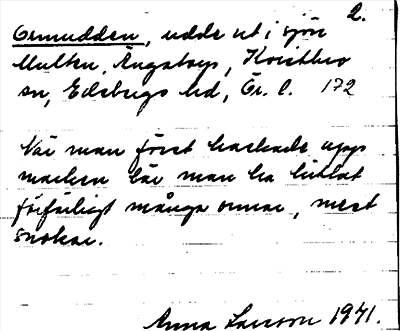 2.
Ormudden, udde ut i sjön
Multen, Ängatorp, Kvistbro
sn, Edsbergs hd, Ör. l. 172
När man först hackade upp
marken lär man ha hittat
förfärligt många ormar, mest
snokar.
Anna Larsson 1941.